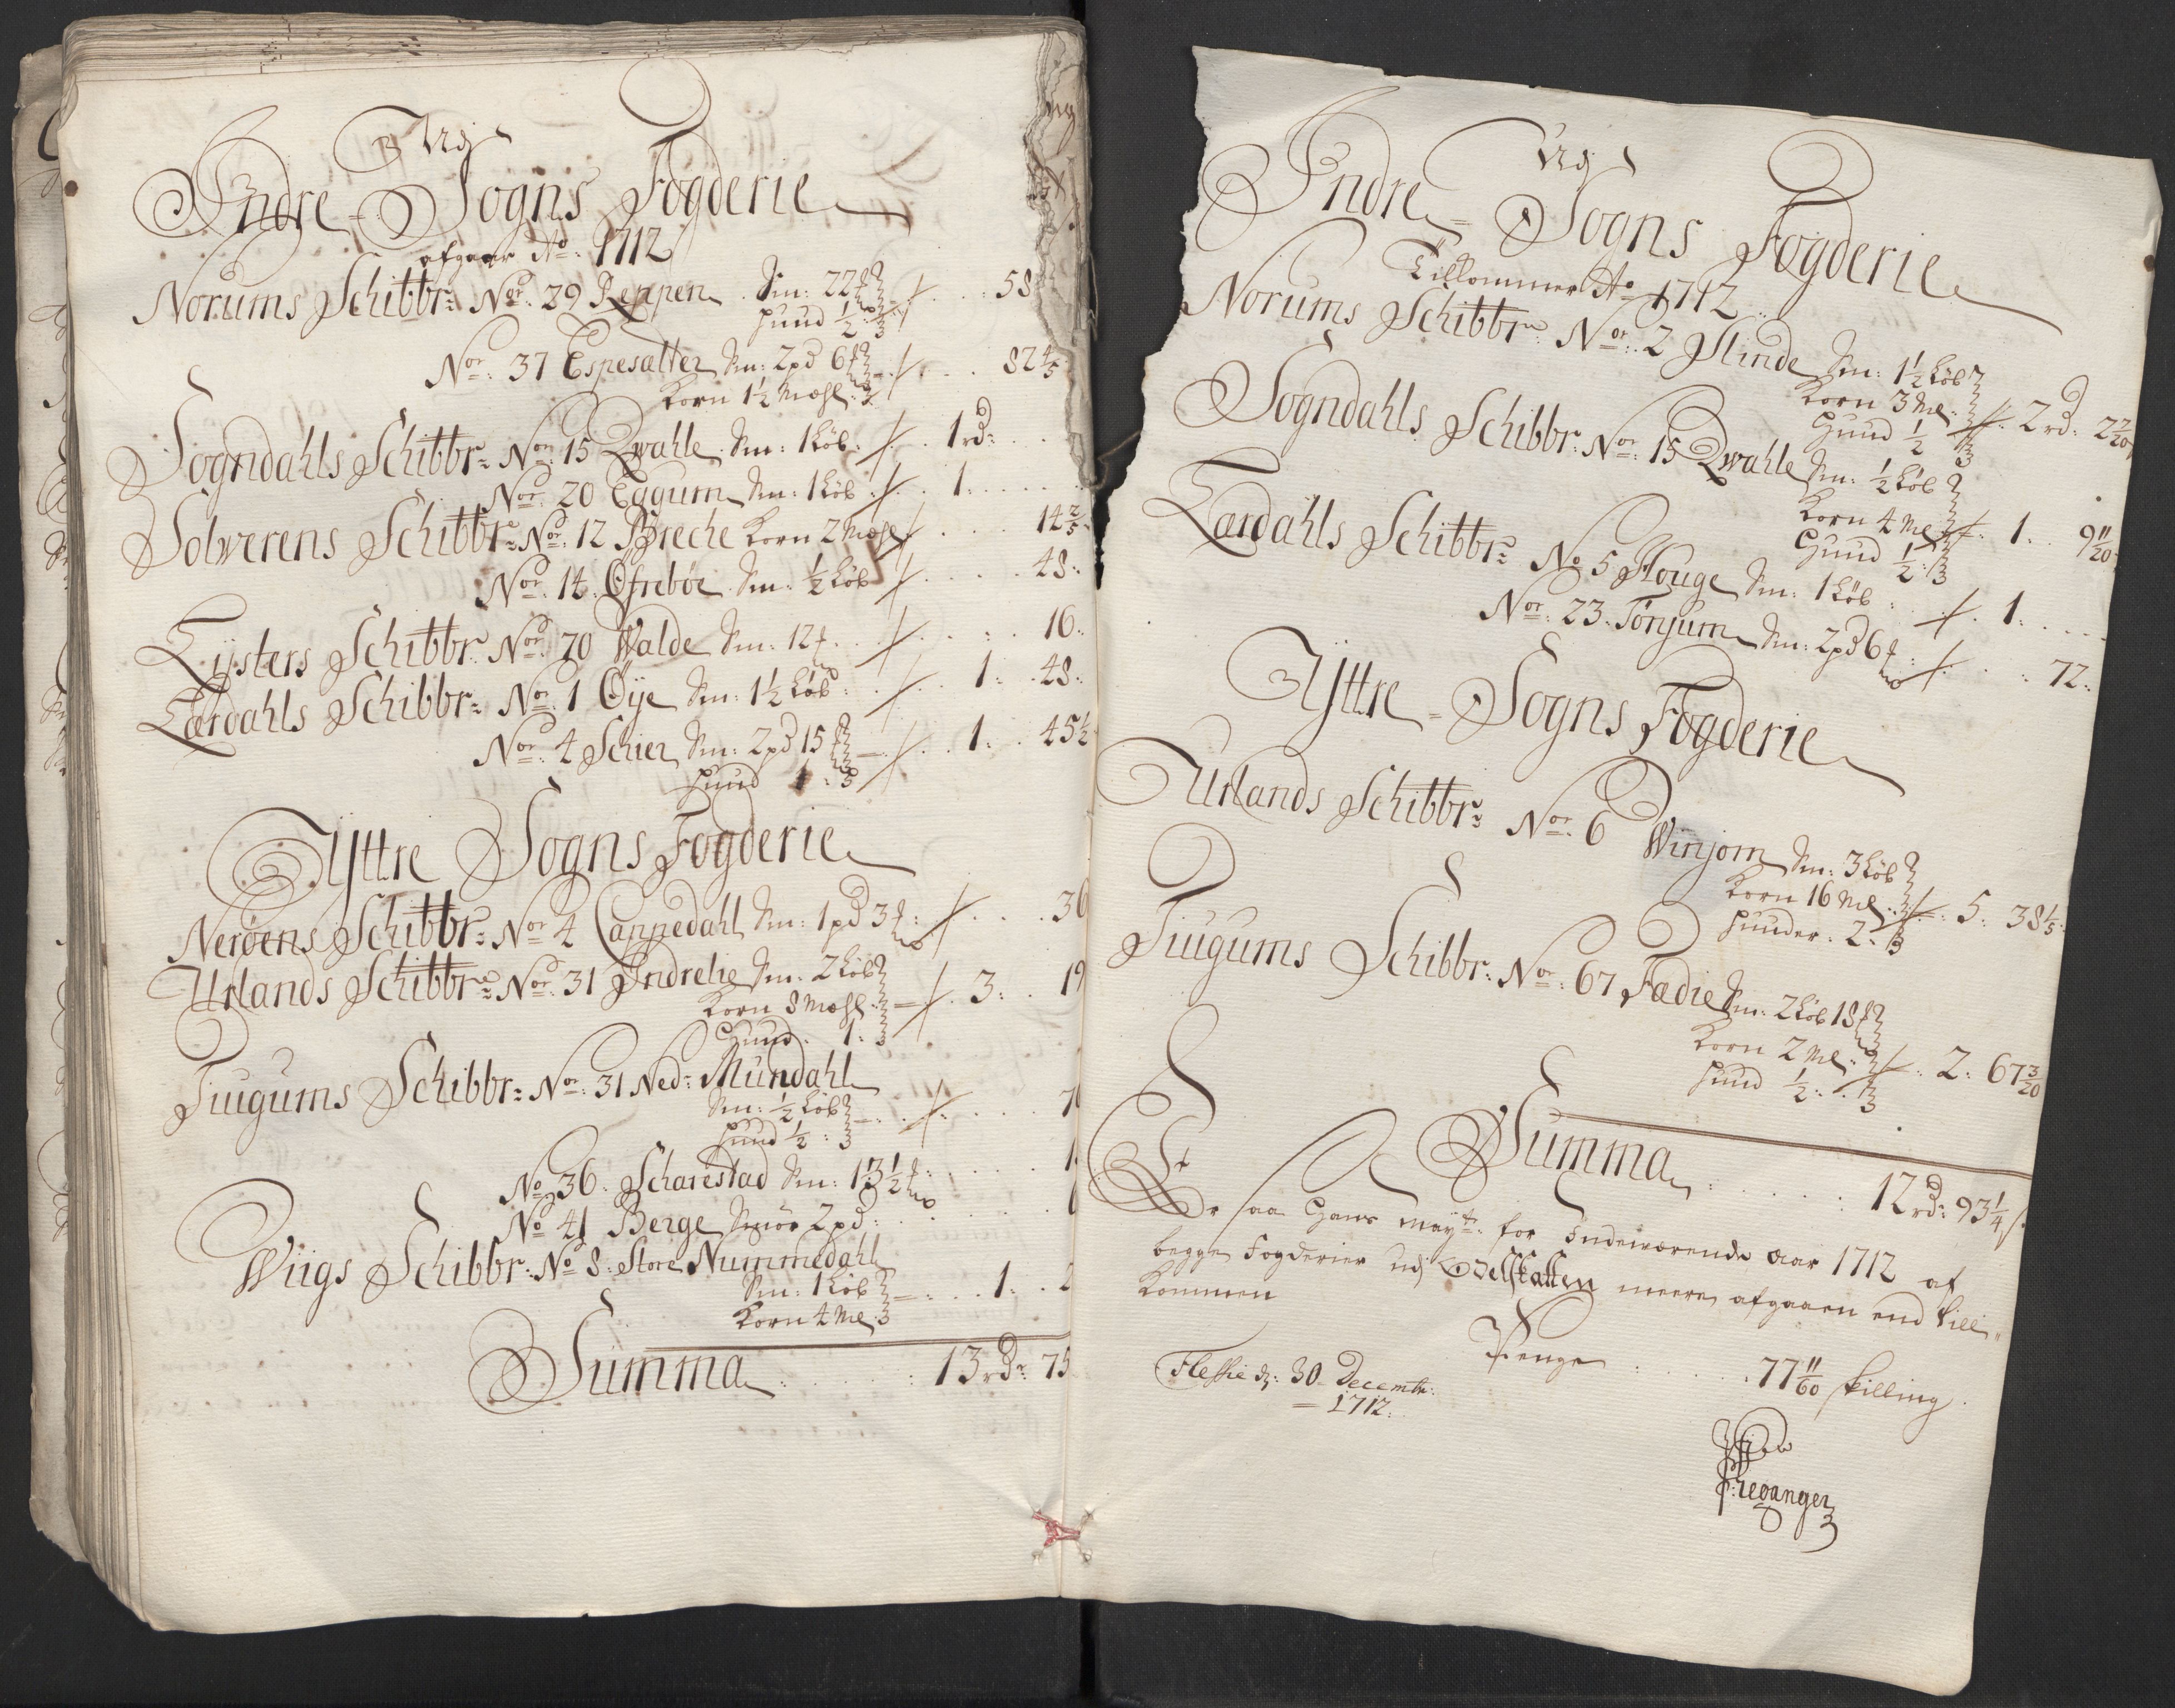 Udj
Indre Sogns Fogderie
afgaar Ao: 1712
Norums Schibbr: Nor: 29 Reppen Sm: 22 58
Huud 1/2:
Nor: 37 Espesatter Sm: 2pd 6 82 4/5
Korn 1½ Mæhl:
Sogndahls Schibbr: Nor: 15 Qwahle Sm: 1 Løb: 1 rd:
Nor: 20 Eggum Sm: 1 Løb: 1:
Solwerens Schibbr: Nor: 12 Breche Korn 2 Mæhl 14 2/5
Nor: 14. Ofrebøe Sm: ½ Løb 48:
Lysters Schibbr: Nor: 70 Walde Sm: 12 16:
Lærdahls Schibbr: Nor: 1 Øye Sm: 1½ Løb: 1: 48:
Nor: 4 Schier Sm: 2pd 15 1: 45½
Huud 1:
Yttre Sogns Fogderie
Nerøens Schibbr: Nor: 4 Cannedahl Sm: 1pd 3 36
Urlands Schibbr: Nor: 31 Indrelie Sm: 2 Løb 3: 19
Korn 8 Mæhl:
Huud: 1:
Tiugums Schibbr: Nor: 31 Ned: Mundahl
Sm: ½ Løb
Huud ½:
No 36: Scharestad Sm: 13½
No 41 Berge Smør 2pd:
Wiigs Schibbr: No 8: Store Nummedahl
Sm: 1 Løb 1: 2
Korn 4 Ml:
Summa 13 rd: 75
Udj
Indre Sogns Fogderie
Tilkommer Ao 1712
Norums Schibbr: Nor: 2 Slinde Sm: 1½ Løb
Korn 3 Ml: 2 rd: 2 7/20
Huud ½
Sogndahls Schibbr: Nor: 15 Qwahle Sm: ½ Løb
Korn 4 Ml 1: 9 11/20
Huud ½:
Lærdahls Schibbr: No 5 Houge Sm: 1 Løb: 1:
Nor: 23. Tønjum Sm: 2pd 6 72:
Yttre Sogns Fogderie
Urlands Schibbr: Nor: 6 Winjom Sm: 3 Løb
Korn 16 Ml: 5: 38 1/5
Huuder: 2:
Tiugums Schibbr: Nor: 67 Fædie Sm: 2 Løb 18
Korn 2 Ml: 2: 67 3/20
Huud ½:
Summa 12 rd: 93 ¼ s
Er saa Hans Mayts: for Indeværende Aar 1712 af
begge Fogderier udj Odelskatten meere afgaaen end till
Kommen
Penge 77 11/60 skilling
Fleshie d: 30 Decembr:
1712.